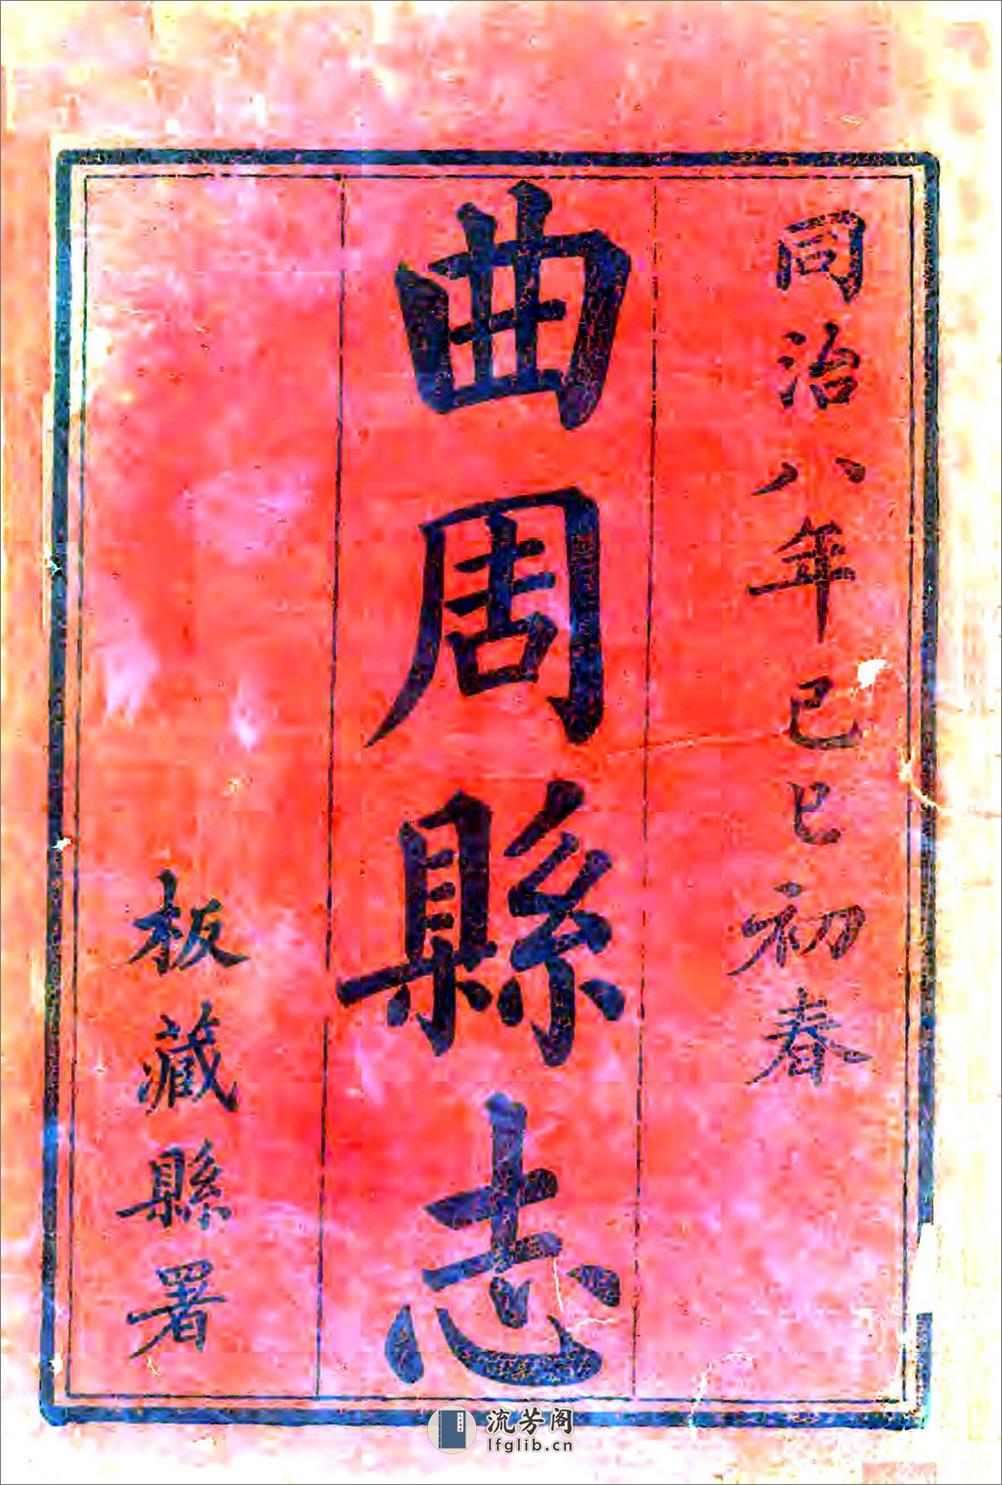 同治八年己巳初春
曲周縣志
板藏縣署
流芳阁
lfglib.cn